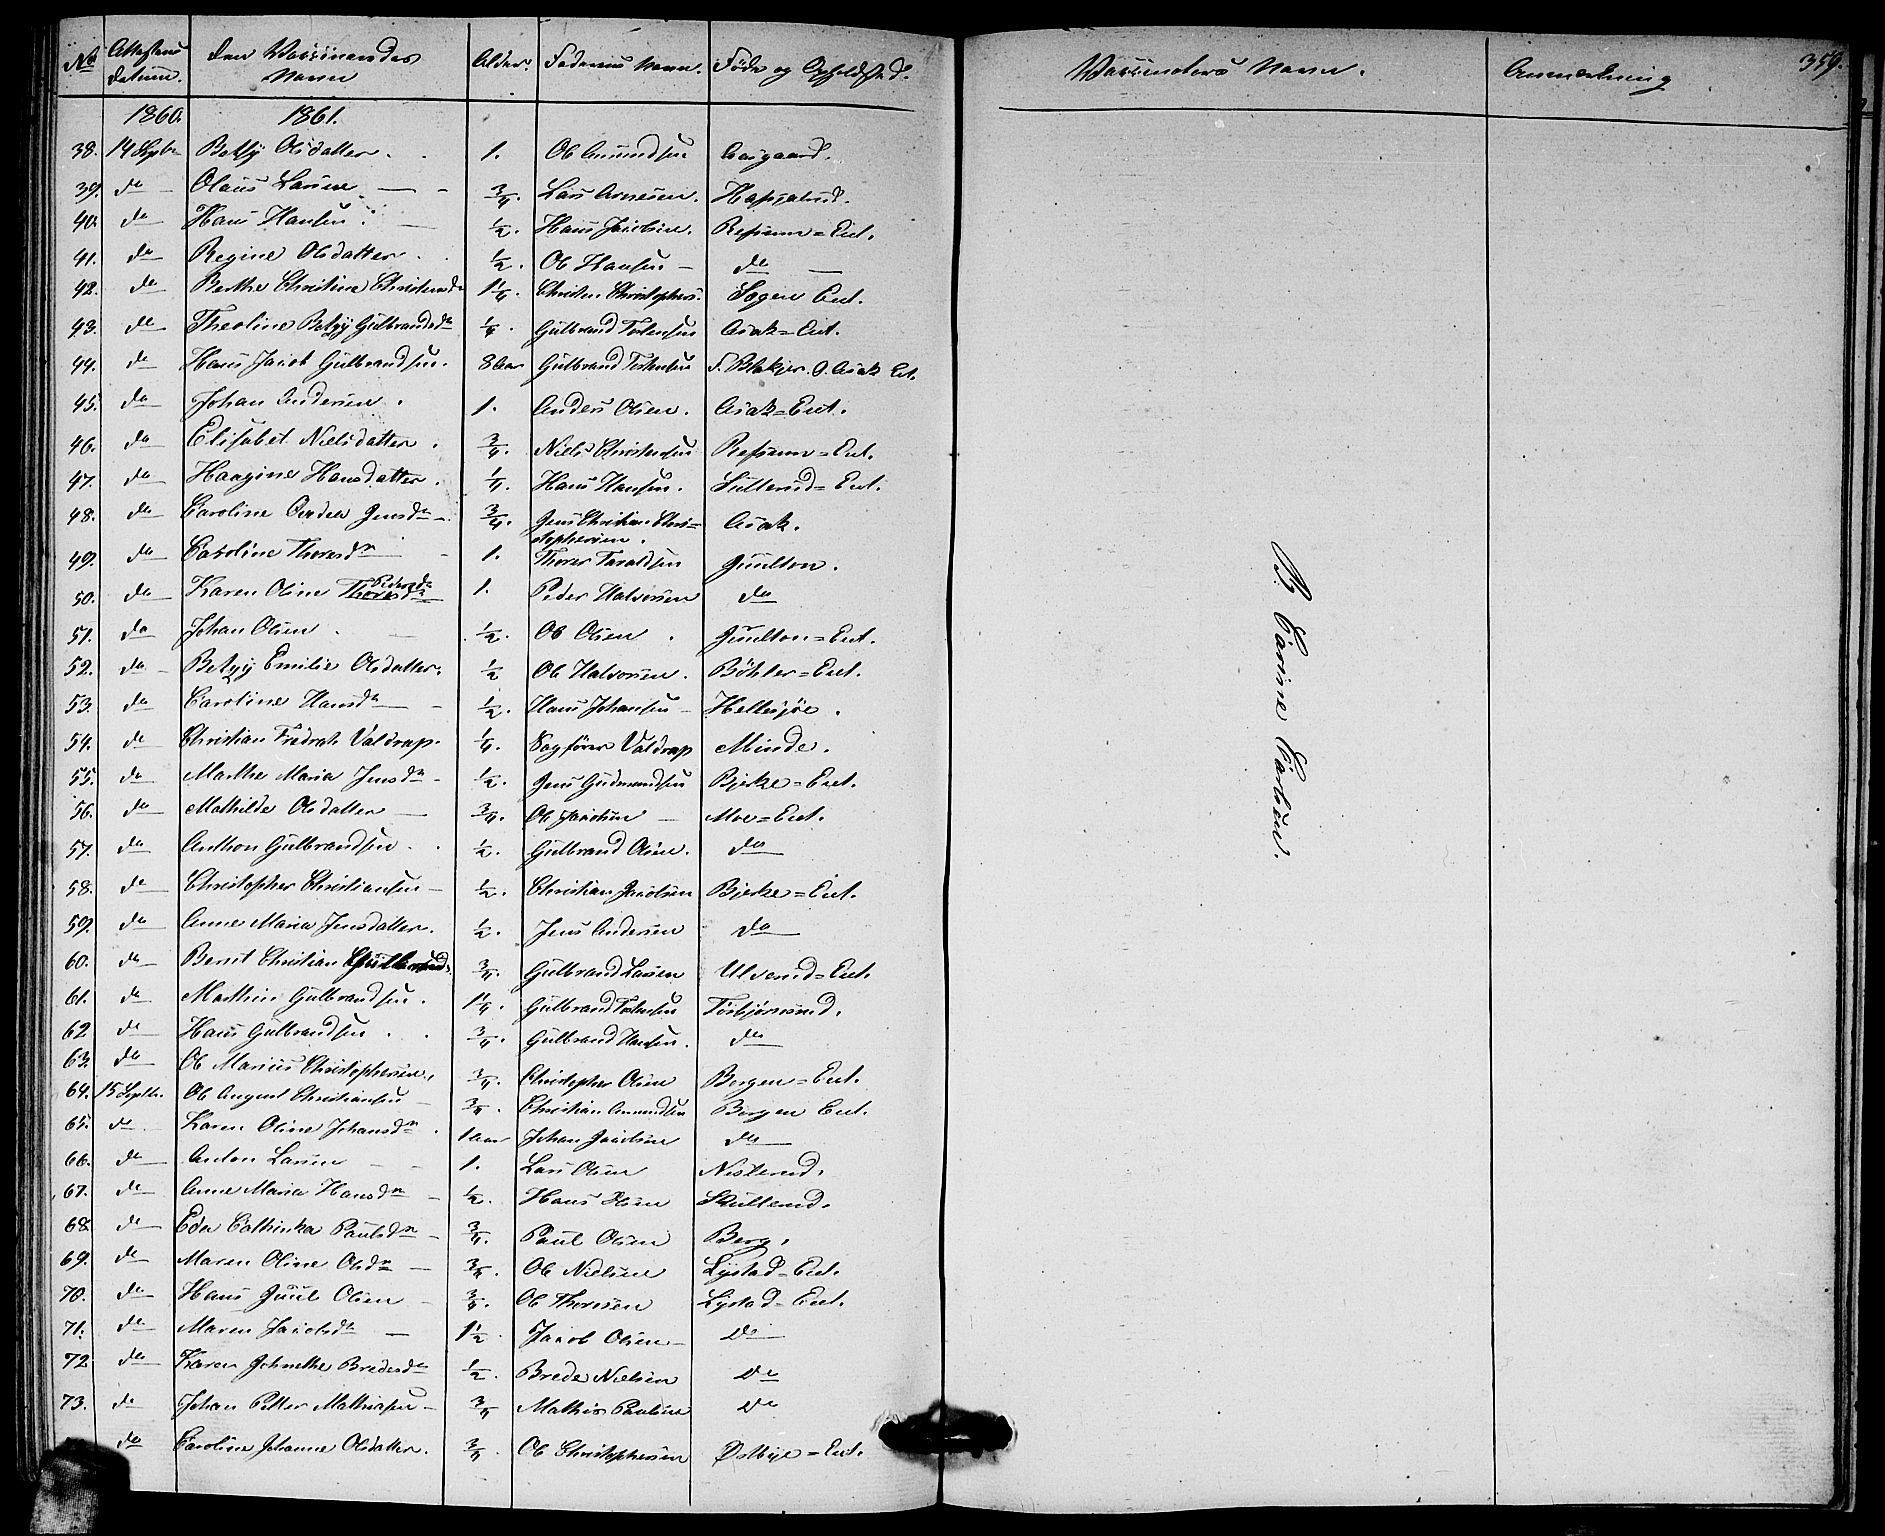 No Attestens Datum. Den Vaccineredes Navn Alder. Faderens Navn. Føde og Opholdsted. Vaccinateurs Navn. Anmærkning 359.
1860. 1861.
38. 14 Septr Betsy Olsdatter. 1. Ole Amundsen Aasgaard.
39. do Olaus Larsen 3/4. Lars Arnesen.
40. do Hans Hansen 1/2. Hans Jacobsen. Refsum=Eiet.
41. do Regine Olsdatter 1/2. Ole Hansen do
42. do Berthe Christine Christensd. 1 1/4. Christen Christophers. Eiet.
43. do Theoline Betzy Gulbrandsdr 1/4. Gulbrand Torstensen Asak=Eiet.
44. do Hans Jacob Gulbrandsen. 8 Aar Gulbrand Torstensen F. Blakjer. O. Asak Et.
45. do Johan Andersen. 1. Anders Olsen. Asak=Eiet.
46. do Elisabet Nielsdatter. 3/4. Niels Christensen Refsum=Eiet.
47. do Haagine Hansdatter. 1/4. Hans Hansen. Eiet.
48. do Caroline Jensdr 3/4. Jens Christian Chri=
stophersen. Asak.
49. do Caroline Thoresdr 1. Thorer Taraldsen Juulton.
50. do Karen Oline Thoresdr Pedersdr 1. Peder Halvorsen do
51. do Johan Olsen. 1/2. Ole Olsen. Juulton=Eiet.
52. do Betzy Emilie Olsdatter. 1/2 Ole Halvorsen. Böhler=Eiet.
53. do Caroline Hansdr 1/2. Hans Johansen Hellesjøe.
54. do Christian Fredrik Valdrap. 1/4. Sagfører Valdrap Minde.
55. do Marthe Maria Jensdr 1/2. Jens Gudmundsen Bjerke=Eiet.
56. do Mathilde Olsdatter 3/4. Ole Jacobsen Moe=Eiet.
57. do Anthon Gulbrandsen. 1/2. Gulbrand Olsen. do
58. do Christopher Christiansen 1/2. Christian Jacobsen Bjerke=Eiet.
59. do Anne Maria Jensdatter. 1/2. Jens Andersen do
60. do Bernt Christian 3/4. Gulbrand Larsen Ulverud=Eiet.
61. do Mathias Gulbrandsen. 1 1/4. Gulbrand Torstensen Torbjørnsrud.
62 do Hans Gulbrandsen. 3/4. Gulbrand Hansen. do
63. do Ole Marius Christophersen. 3/4. Christopher Olsen Borgen=Eiet.
64. 15 Septbr. Ole August Christiansen 3/4. Christian Amundsen Borgen Eiet.
65. do Karen Oline Johansdr. 1 Aar Johan Jacobsen do
66. do Anton Larsen 1. Lars Olsen Nisterud.
67. do Anne Maria Hansdr 1/2. Hans Olsen Skullerud.
68. do Eda Cathinka Paulsdr 3/4. Paul Olsen Berg.
69. do Maren Oline Olsdr 3/4. Ole Nielsen Lystad=Eiet.
70. do Hans Juul Olsen 3/4. Ole Thoresen Lystad=Eiet.
71. do Maren Jacobsdr 1 1/2. Jacob Olsen do
72 do Karen Johnethe Bredesdr 1/2. Brede Nielsen do
73. do Johan Petter Mathiasen 3/4 Mathis Paulsen do
do Caroline Johanne Olsdatter. 3/4 Ole Christophersen Østbye=Eiet.
B. Carine Carlsen.